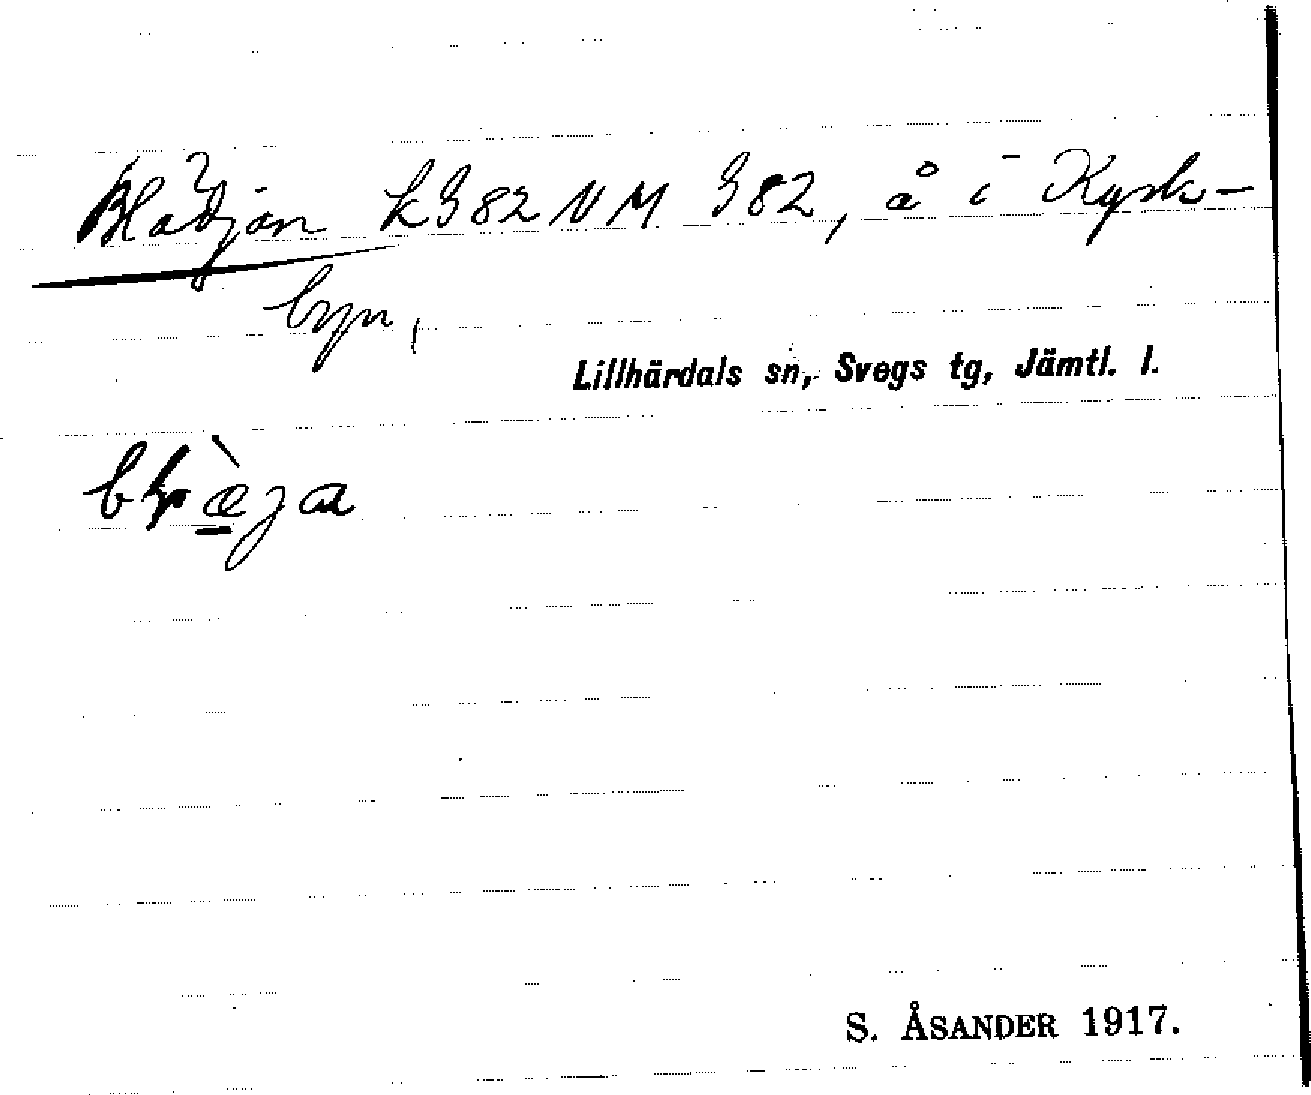 Bladjan k982 NM 982, å i Kyrk-
byn,
Lillhärdals sn, Svegs tg, Jämtl. l.
S. ÅSANDER 1917.